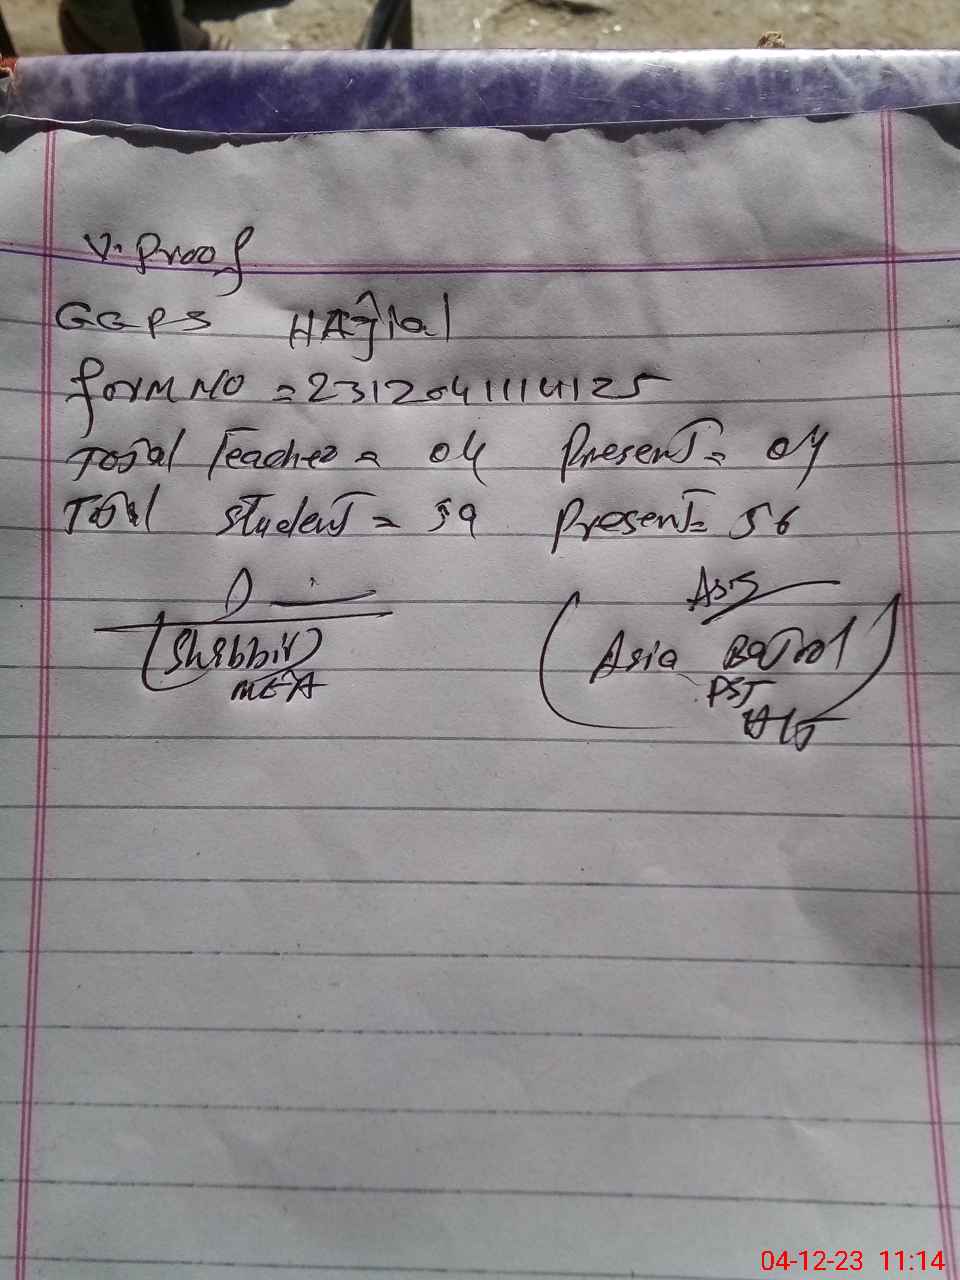 V. Proof
GGPS HAJial
form NO = 2312041114125
Total Teacher = 04 Present = 04
Total student = 59 Present = 56
(Shabbir)
MEA
Asia Batool
PST
04-12-23 11:14